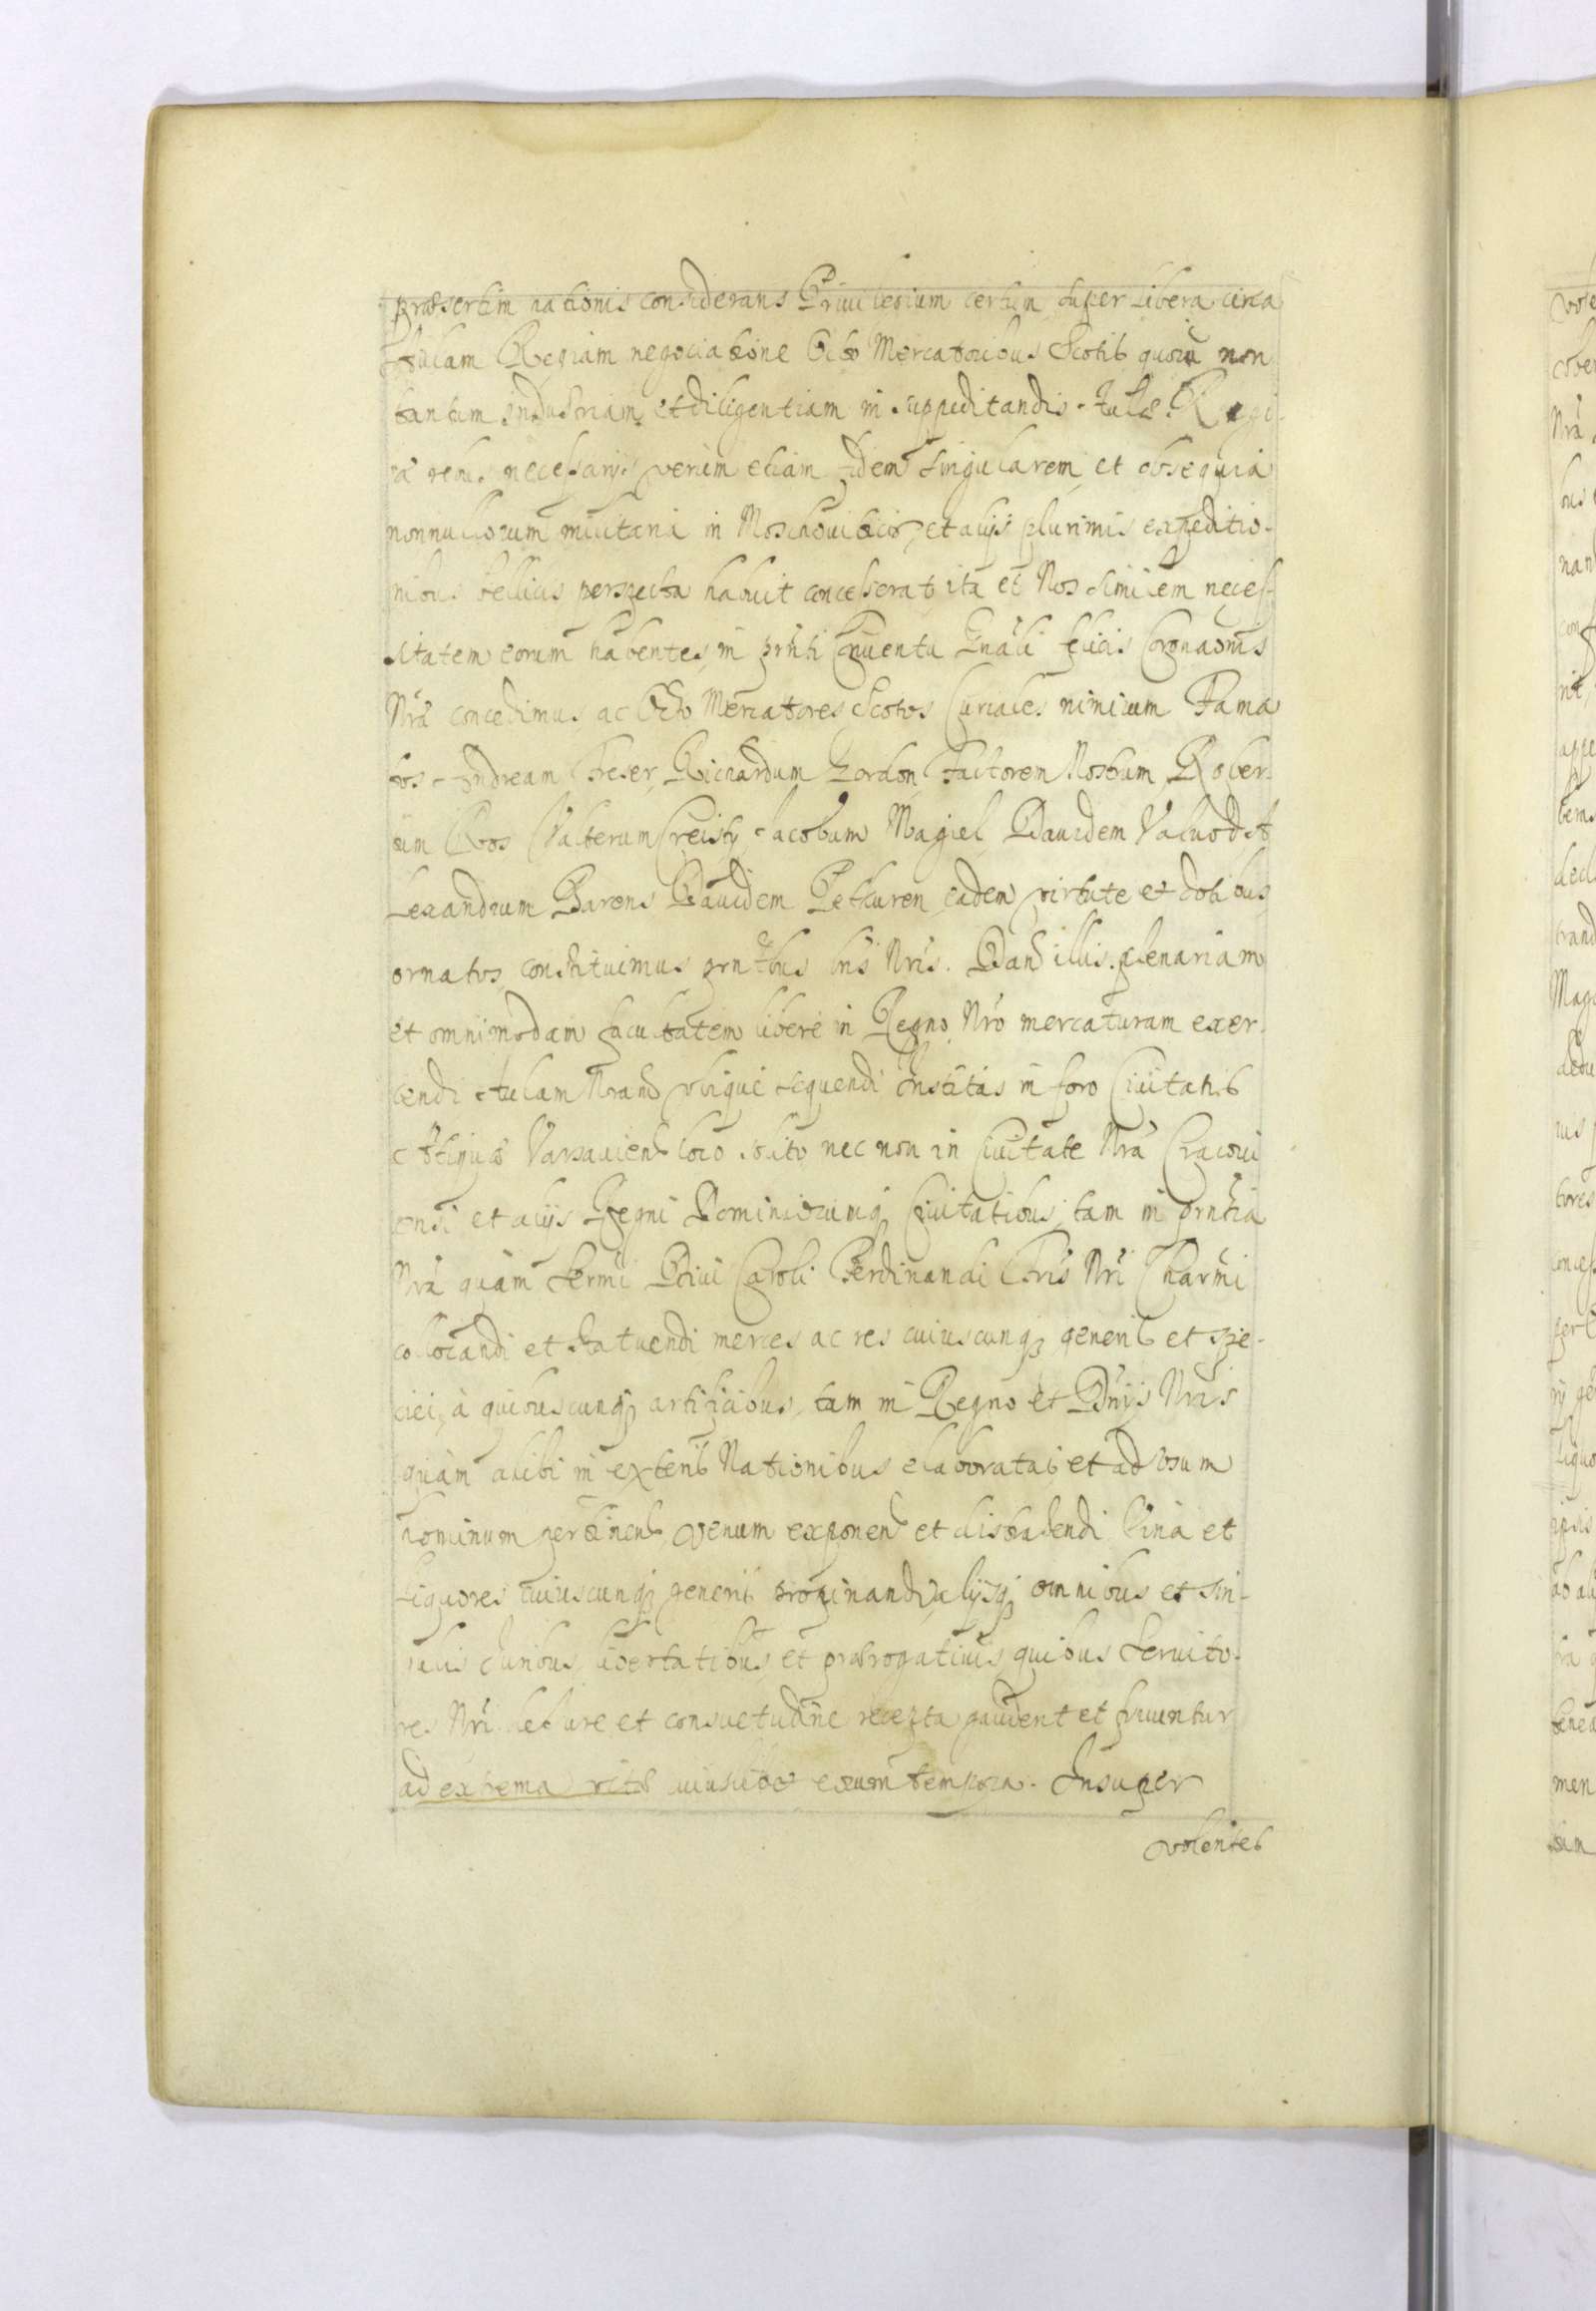 præsertim nationis considerans Privilegium certum super libera circa
Aulam Regiam negociatione Octo Mercatoribus Scotis quorũ non
tantum industriam et diligentiam in suppeditandis Aulæ Regi-
æ rebus necessarijs verùm etiam fidem singularem et obsequia
nonnullorum militaria in Moschoviticis et alijs plurimis expeditio-
nibus bellicis perspecta habuit concesserat ita et Nos similem neces-
sitatem eorum habentes, in pñti Conventu Gnãli felicis Coronaõnis
Nrã concedimus ac Octo Mercatores Scotos Curiales nimirum Fama
tos Andream Freser, Richardum Gordon Factorem Nostrum Rober-
tum Ros Valterum Creisty Jacobum Magiel Davidem Valuod A
lexandrum Barens Davidem Pethuren eadem virtute et dotibus
ornatos constituimus prntbus lris Nris. Dand illis plenariam
et omnimodam facultatem liberè in Regno Nro mercaturam exer-
cendi Aulam Nram ubique sequendi Institas in foro Civitatis
Antiquæ Varsaviens loco solito nec non in Civitate Nrã Cracovi
ensi et alijs Regni Dominiorumq Civitatibus tam in prntia
Nrã quàm Sermi Prini Caroli Ferdinandi Fris Nri Charmi
colocandi et statuendi merces ac res cuiuscunq generis et spe-
ciei, à quibuscunq artificibus, tam in Regno et Dnijs Nris
quàm alibi in exteris Nationibus elaboratas et ad usum
hominum pertinens, venum exponend et distrahendi Vina et
Liquores cuiuscunq generis propinandi, alijsq omnibus et sin-
gulis Juribus, libertatibus, et prærogativis, quibus Servito-
res Nri de Jure et consuetudine recepta gaudent et fruuntur
ad extrema vitæ uiuslibet eorum tempora. Insuper
volentes